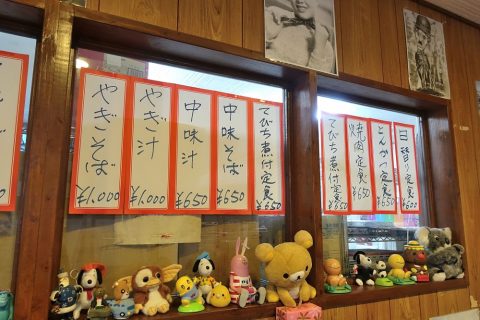 やぎそば ¥1,000
やぎ汁 ¥1,000
中味汁 ¥650
中味そば ¥650
てびち煮付定食 ¥650
てびち煮付定食 ¥650
焼肉定食 ¥650
とんかつ定食 ¥650
日替り定食